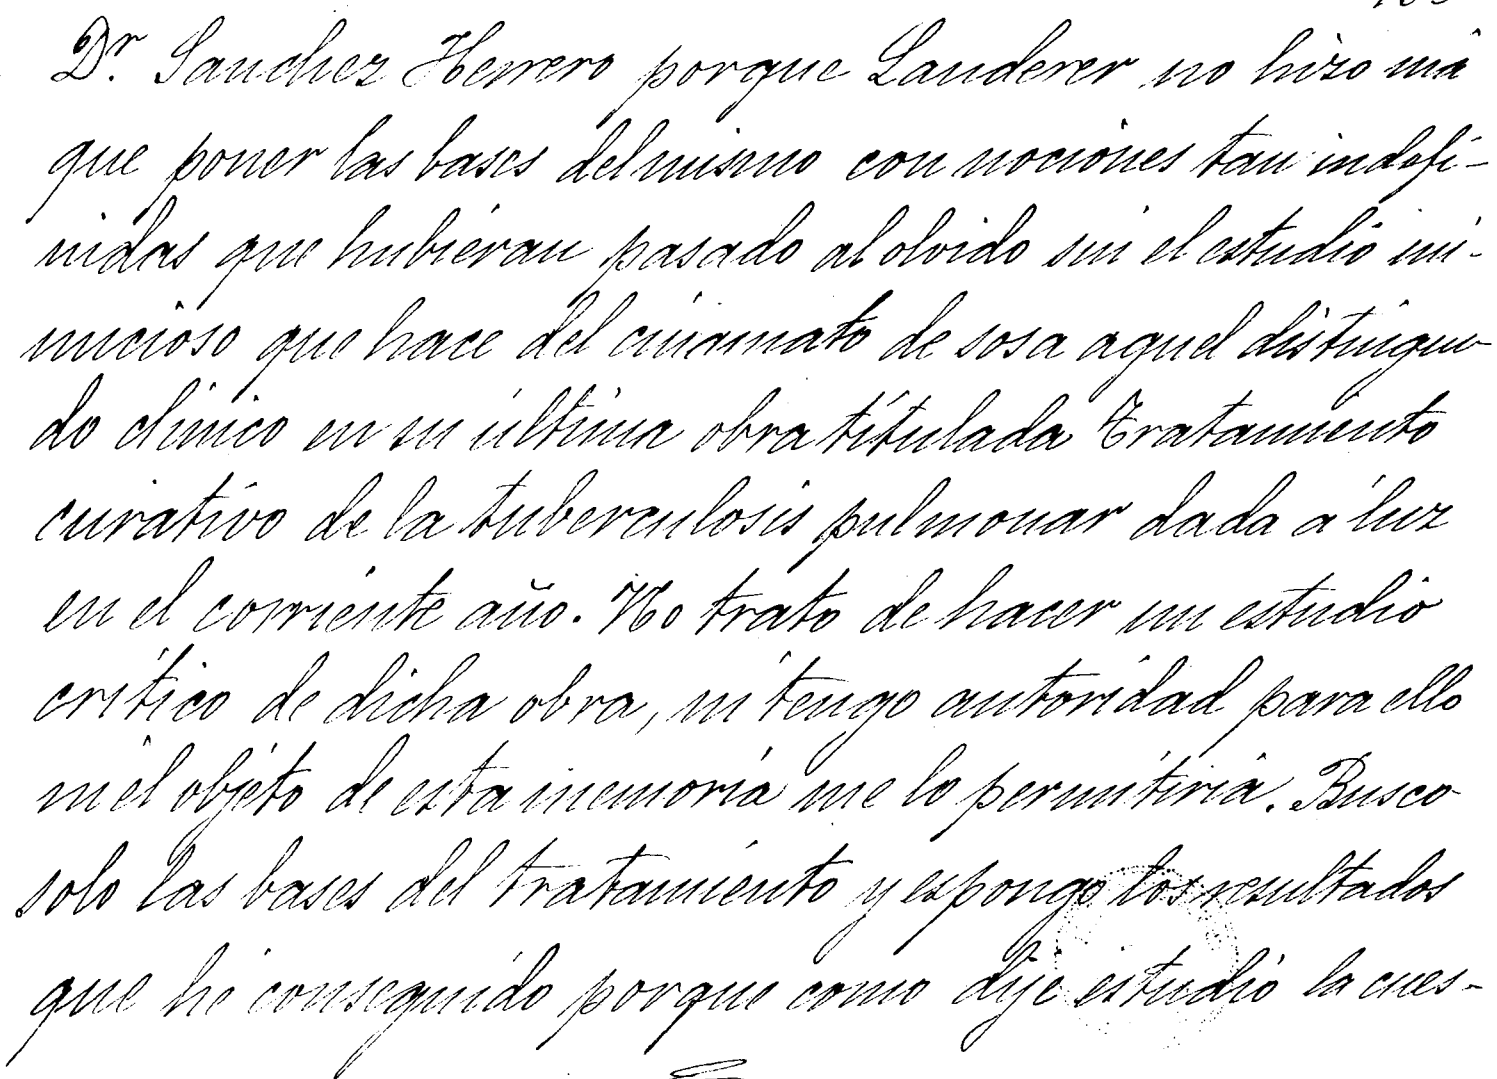 Dr. Sanchez Herrero porque Landerer no hizo má
que poner las bases del mismo con nociones tan indefi-
nidas que hubieran pasado al olvido sin el estudio mi-
nucioso que hace del cinamato de sosa aquel distingui
do clínico en su última obra titulada Tratamiento
curativo de la tuberculosis pulmonar dada a luz
en el corriente año. No trato de hacer un estudio
crítico de dicha obra, ni tengo autoridad para ello
ni el objeto de esta memoria me lo permitiria. Busco
solo las bases del tratamiento y espongo los resultados
que he conseguido porque como dije estudio la cues-